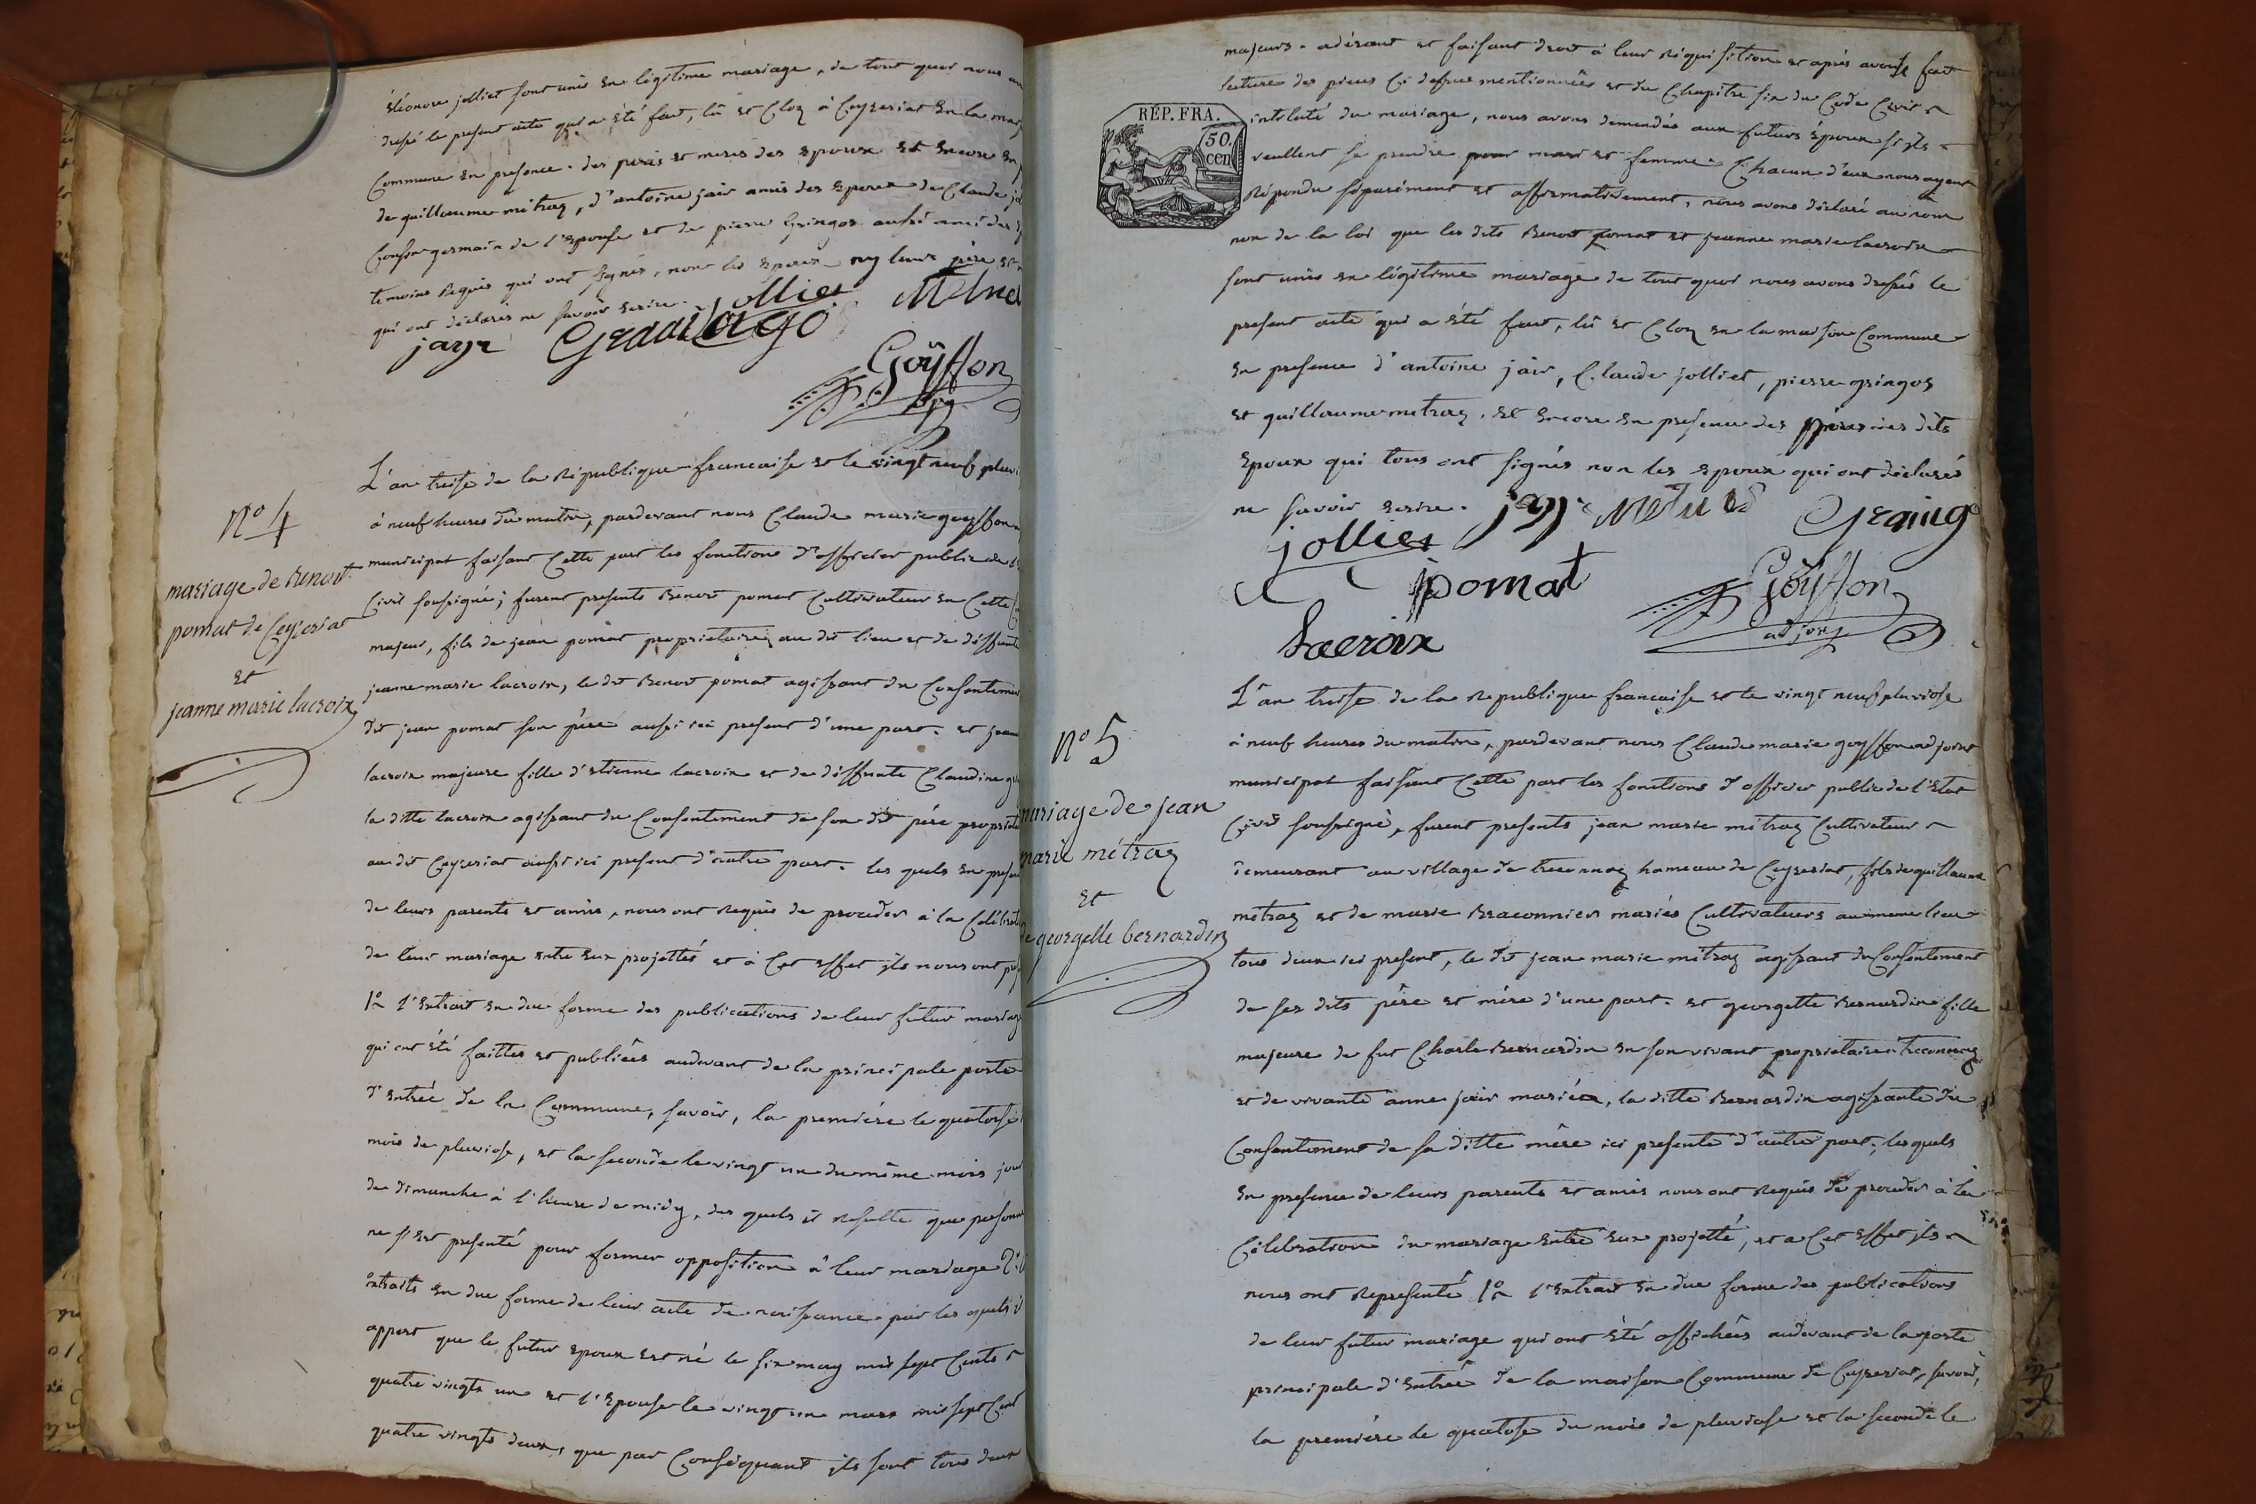 éléonore jolliet sont unis en légitime mariage, de tout quoi nous
dressé le present acte qui a été fait, lû et Cloz à Ceyzeriat en la
Commune en presence. des peres et meres des epoux et encore en
de guillaume métraz, d'antoine jair amis des epoux de Claude
Cousin germain de l'epouse et de pierre gringoz aussi ami des
temoins requis qui ont signés, non les epoux ny leurs père et
qui ont déclarés ne savoir ecrire. jollier
jaye
Goÿffon
adj
N° 4
mariage de Benoit
pomat de Ceyzeriat
et
jeanne marie lacroix
L'an treise de la République francaise et le vingt neuf
à neuf heures du matin, pardevant nous Claude marie goyffon
municipal faisant Cette part les fonctions d'officier public de
Civil soussigné; furent presents Benoit pomat Cultivateur en Cette
majeur, fils de jean pomat proprietaire au dit lieu et de deffunte
jeanne marie lacroix, le dit Benoit pomat agissant du Consentement
dit jean pomat son père aussi ici present d'une part. et
lacroix majeure fille d'etienne lacroix et de déffunte Claudine
la ditte lacroix agissant du Consentement de son dit père
au dit Ceyzeriat aussi ici present d'autre part. les quels en
de leurs parents et amis, nous ont requis de proceder à la
de leur mariage entre eux projettés et à Cet effet ils nous ont
1° l'extrait en due forme des publications de leur futur
qui ont été faittes et publiées audevant de la principale porte
d'entrée de la Commune, savoir, la première le quatorse
mois de pluviose, et la seconde le vingt un du même mois
de dimanche à l'heure de midy, des quels il resulte que
ne s'est presenté pour former opposition à leur mariage 2°
extraits en due forme de leur acte de naissance. par les quels il
appert que le futur epoux est né le six may mil sept Cents
quatre vingts un et l'epouse le vingt un mars mil sept Cent
quatre vingts deux, que par Conséquant ils sont tous deux
majeurs. adérant et faisant droit à leur réquisition et après avoir fait
lecture des pieces Ci dessus mentionnées et du Chapitre six du Code Civil
RÉP. FRA.
50.
cen
intitulé du mariage, nous avons demandés aux futurs époux si ils
veullent se prendre pour mari et femme. Chacun d'eux nous ayent
répondu séparément et affirmativement, nous avons déclaré au nom
non de la loi que les dits Benoit pomat et jeanne marie lacroix
sont unis en légitime mariage de tout quoi nous avons dressés le
present acte qui a été fait, lû et Cloz en la maison Commune
en presence d'antoine jair, Claude jolliet, pierre gringoz
et guillaume metraz. et encore en presence des pères des dits
epoux qui tous ont signés non les epoux qui ont déclarés
ne savoir ecrire.
jollier
pomat
Goÿffon
adjoint
Lacroix
N° 5
mariage de jean
marie métraz
et
de georgette bernardin
L'an treise de la republique francaise et le vingt neuf pluviose
à neuf heures du matin, pardevant nous Claude marie goyffon adjoint
municipal faisant Cette part les fonctions d'officier public de l'etat
Civil soussigné, furent presents jean marie métraz Cultivateur
demeurant au village de treconnaz hameau de Ceyzeriat, fils de guillaume
metraz et de marie Braconnier mariés Cultivateurs au meme lieu
tous deux ici present, le dit jean marie métraz agissant du Consentement
de ses dits père et mère d'une part. et georgette Bernardin fille
majeure de fut Charle Bernardin en son vivant proprietaire à treconnaz
et de vivante anne jair mariéa, la ditte Bernardin agissante du
Consentement de sa ditte mère ici presente d'autre part. les quels
en presence de leurs parents et amis nous ont requis de proceder à la
Célébration du mariage entre eux projetté, et a Cet effet ils
nous ont representé 1° l'extrait en due forme des publications
de leur futur mariage qui ont été affichées audevant de la porte
principale d'entrée de la maison Commune de Ceyzeriat, savoir,
la première le quatose du mois de pluviose et la seconde le